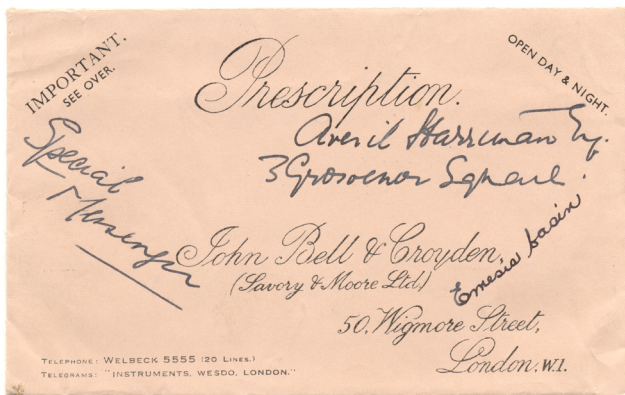 IMPORTANT.
SEE OVER.
OPEN DAY & NIGHT.
Prescription.
Averil Harriman Esq.
3 Grosvenor Square.
Special
Messenger
John Bell & Croyden,
(Savory & Moore Ltd)
Emesis basin
50, Wigmore Street,
London, W.1.
TELEPHONE: WELBECK 5555 (20 LINES.)
TELEGRAMS: "INSTRUMENTS, WESDO, LONDON."